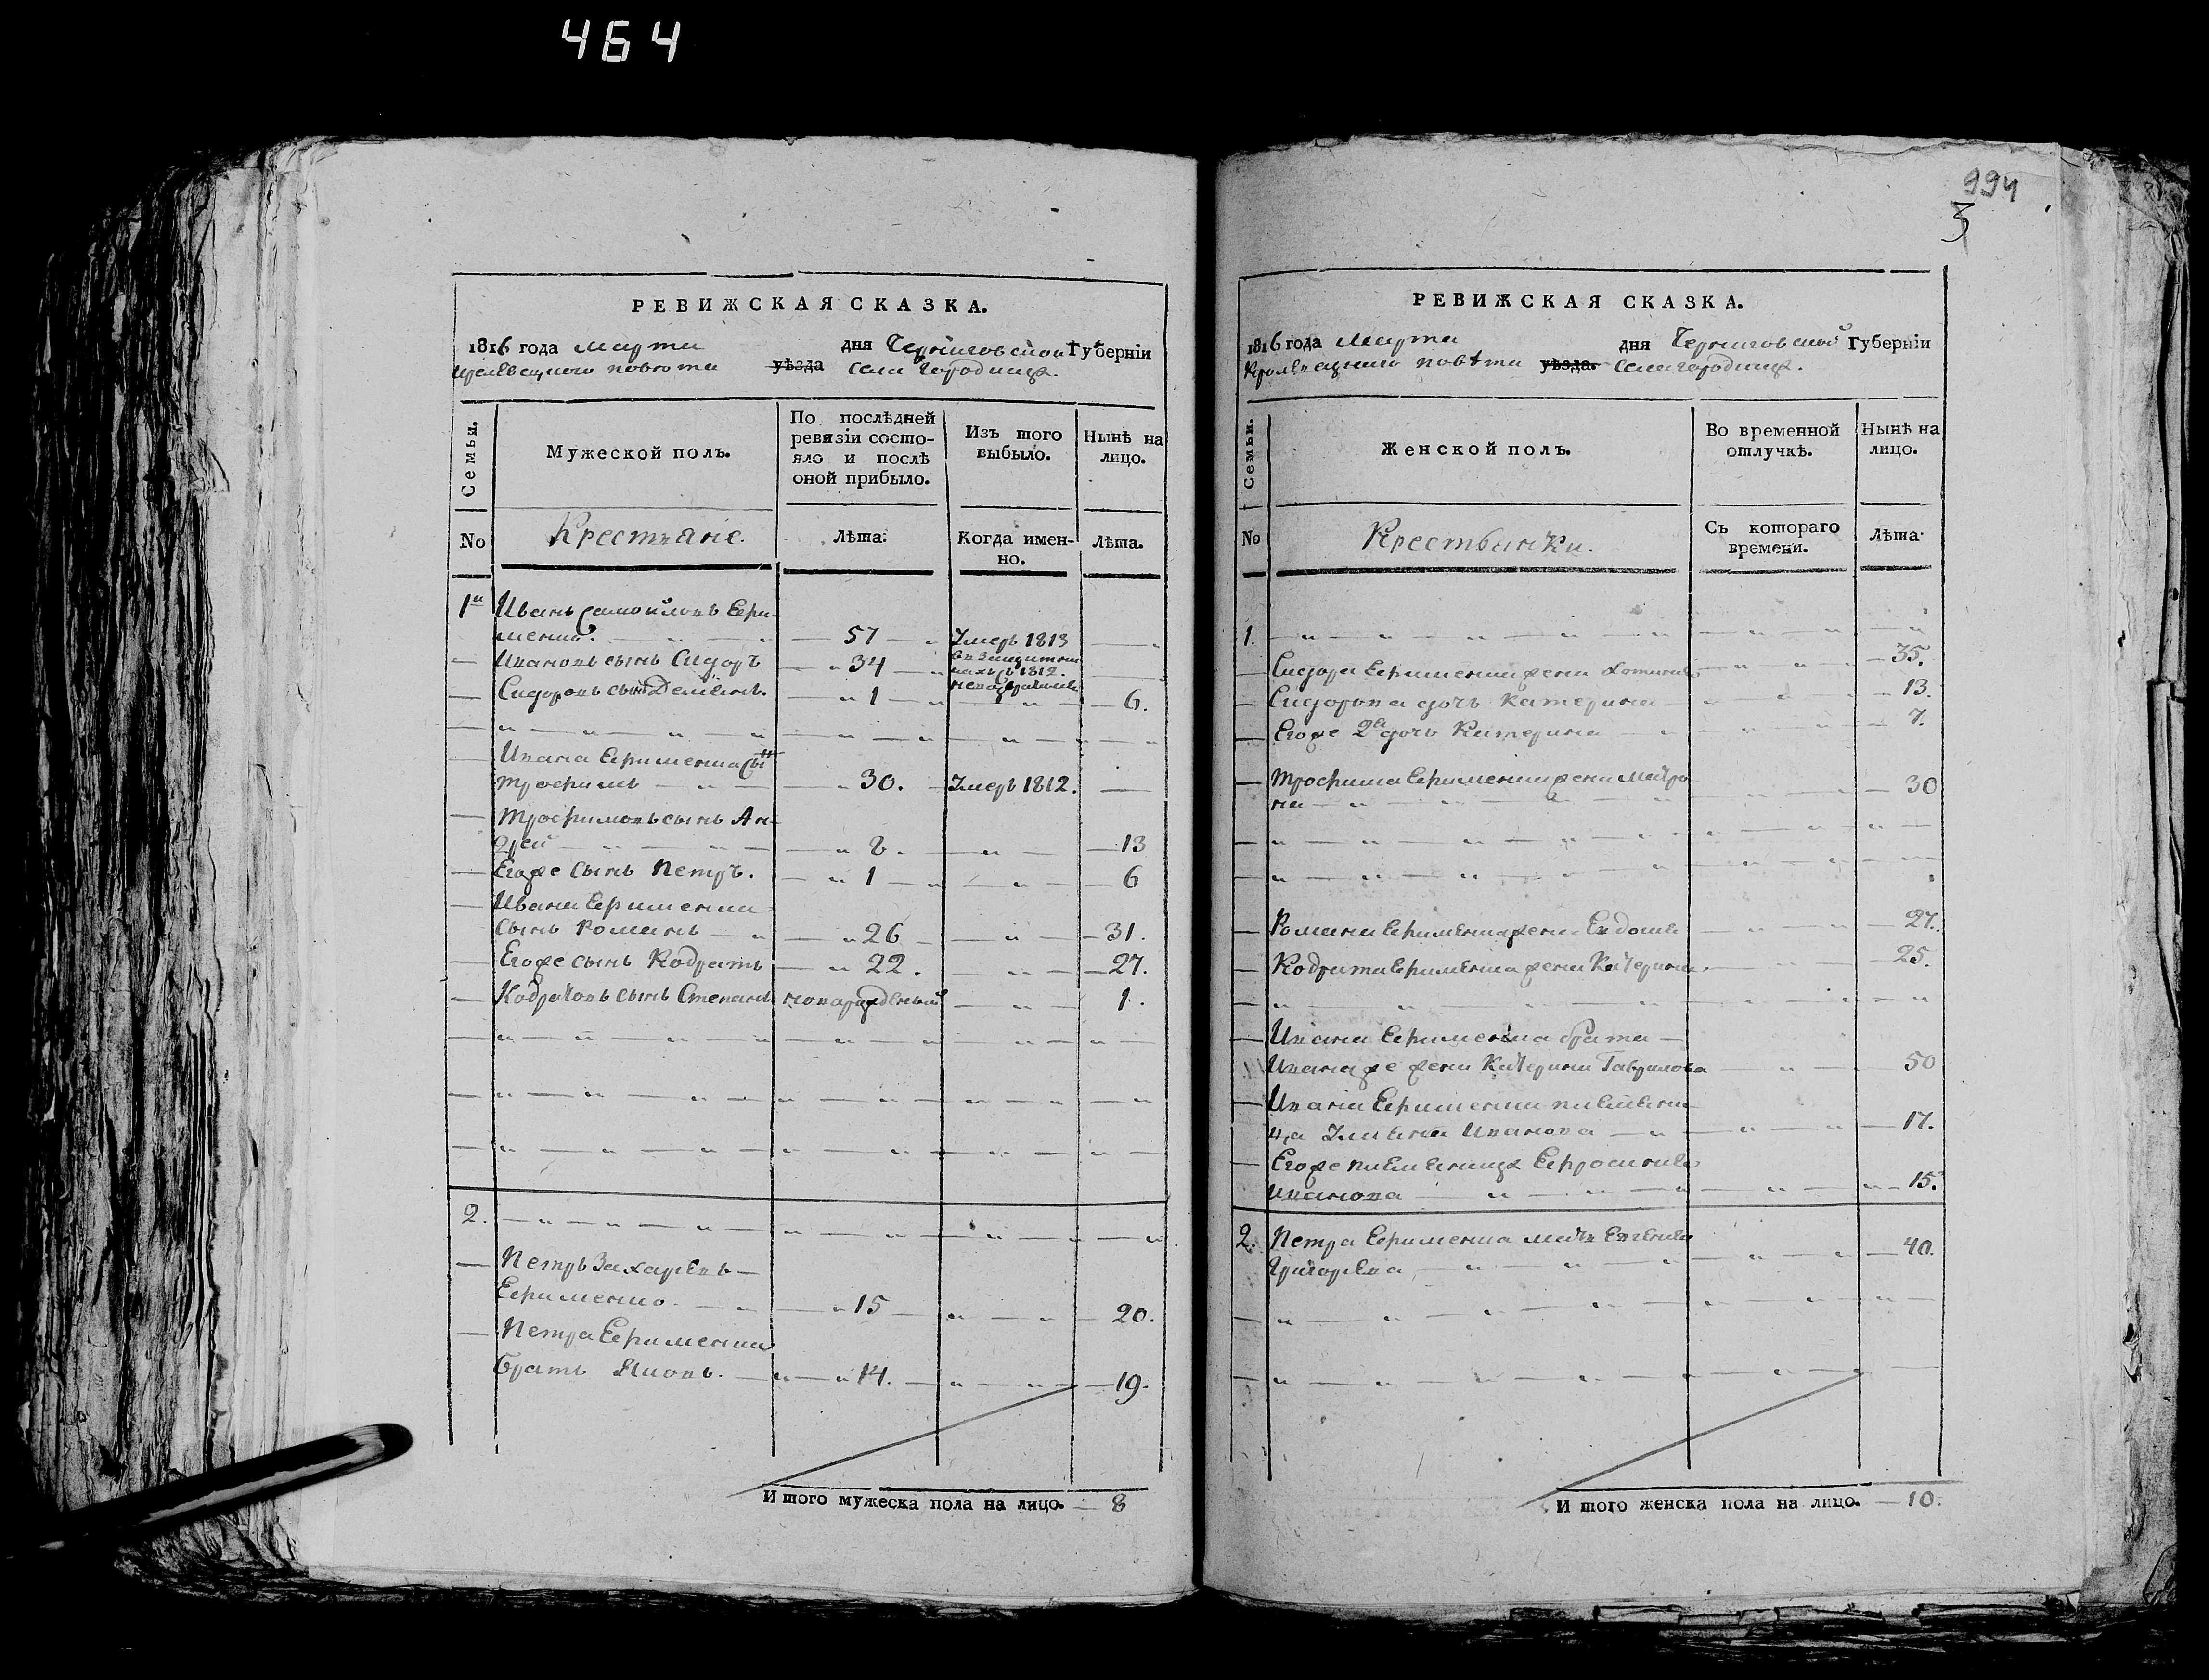 464
РЕВИЖСКАЯ СКАЗКА.
1816 года марта дня Черниговской Губерніи
кролевецкого повѣта уѣзда села Городища.
Семьи.
Мужеской полъ.
По послѣдней ревизіи состо-
яло и послѣ оной прибыло.
Изъ того выбыло.
Нынѣ на лицо.
No
Крестьяне.
Лѣта.
Когда имен-
но.
Лѣта.
1й Иванъ Самойловъ Ери-
менко. 57 Умеръ 1813
Ивановъ сынъ Сидоръ 34 1812.
Сидоровъ сынъ Деменъ. 1 6.
Ивана Ерименка сынъ
Трофимъ 30. Умеръ 1812.
Трофимовъ сынъ Ан-
дрей 8. 13
Егоже сынъ Петръ. 1 6
Ивана Ерименка
сынъ Романъ 26 31.
Егоже сынъ Кодратъ 22. 27.
Кодратовъ сынъ Степанъ новорожденный 1.
2.
Петръ Захаревъ
Ерименко. 15 20.
Петра Ерименка
братъ Яковъ. 14. 19.
И того мужеска пола на лицо. 8
994
3
РЕВИЖСКАЯ СКАЗКА.
1816 года Марта дня Черниговской Губерніи
Кролевецкого повѣта уѣзда. села городища.
Семьи.
Женской полъ.
Во временной отлучкѣ.
Нынѣ на лицо.
No
Крестьянки.
Съ котораго времени.
Лѣта.
1.
Сидора Ерименка жена 35.
Сидорова дочь Катерина 13.
Егоже 2я дочь Катерина 7.
Трофима Ерименка жена Матро-
на 30
Романа Ерименка жена Евдокия 27.
Кодрата Ерименка жена Катерина 25.
Ивана Ерименка брата
Ивана же жена Катерина Гаврилова 50
Ивана Ерименка племени-
ца Ульяна Иванова 17.
Егоже племеница Ефросиния
Иванова 15.
2. Петра Ерименка мать Евгения
Григорева 40.
И того женска пола на лицо. 10.